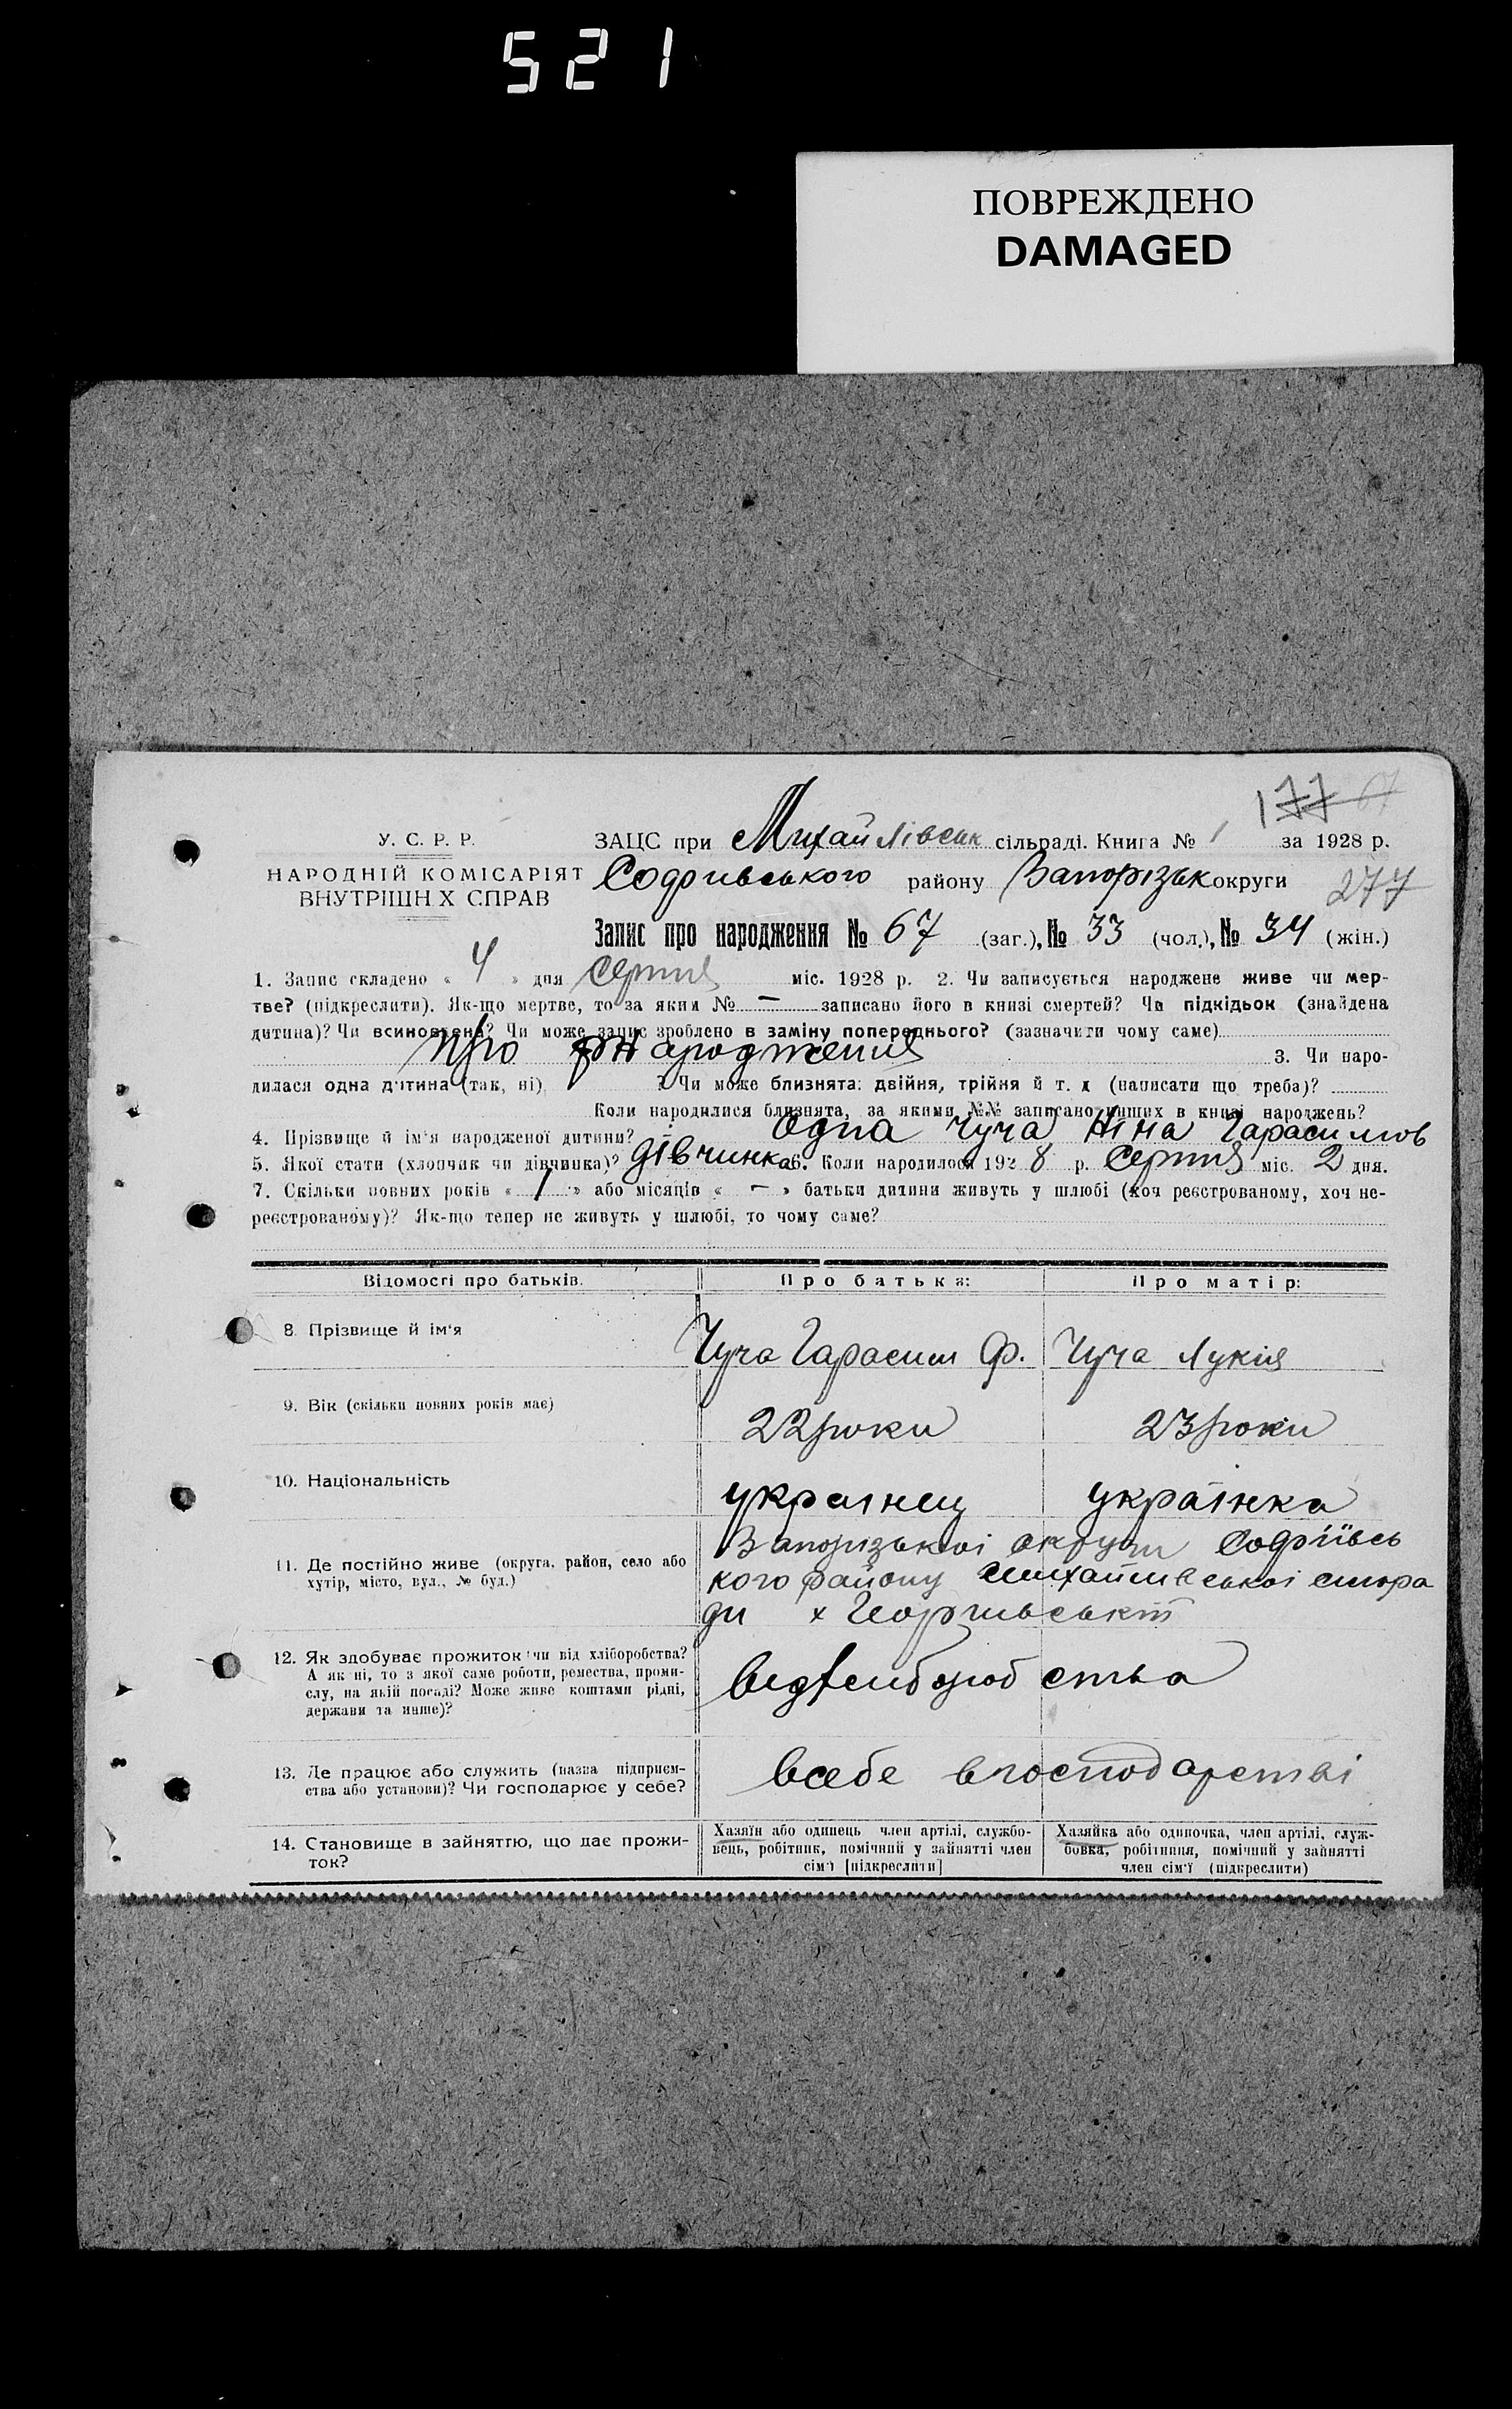 521
ПОВРЕЖДЕНО
DAMAGED
177 67
У. С. Р. Р. ЗАЦС при Михайлівськ сільраді. Книга № 1 за 1928 р.
НАРОДНІЙ КОМІСАРІЯТ Софіївського району Запорізьк округи 277
ВНУТРІШН Х СПРАВ
Запис про народження № 67 (заг.), № 33 (чол.), № 34 (жін.)
1. Запис складено « 4 » дня серпня міс. 1928 р. 2. Чи записується народжене живе чи мер-
тве? (підкреслити). Як-що мертве, то за яким № — записано його в книзі смертей? Чи підкідьок (знайдена
дитина)? Чи всиновлена? Чи може запис зроблено в заміну попереднього? (зазначити чому саме)
про народження 3. Чи наро-
дилася одна дитина (так, ні) ? Чи може близнята: двійня, трійня й т. д (написати що треба)?
Коли народилися близнята, за якими №№ записано инших в книзі народжень?
4. Прізвище й ім'я народженої дитини? Одна Чуча Ніна Гарасимов
5. Якої стати (хлопчик чи дівчинка)? дівчинка 6. Коли народилося 192 8 р. серпня міс. 2 дня.
7. Скільки повних років « 1 » або місяців « — » батьки дитини живуть у шлюбі (хоч реєстрованому, хоч не-
реєстрованому)? Як-що тепер не живуть у шлюбі, то чому саме?
Відомості про батьків. Про батька: Про матір:
8. Прізвище й ім'я Чуча Гарасим Ф. Чуча Лукія
9. Вік (скільки повних років має) 22 роки 23 роки
10. Національність украінец украінка
11. Де постійно живе (округа, район, село або Запорізькоі округи Софіївсь
хутір, місто, вул., № буд.) кого району Михайлівськоі сільра
ди х Георгиівськ
12. Як здобуває прожиток чи від хліборобства?
А як ні, то з якої саме роботи, ремества, проми-
слу, на якій посаді? Може живе коштами рідні, від хліборобства
держави та инше)?
13. Де працює або служить (назва підприєм- всебе вгосподарстві
ства або установи)? Чи господарює у себе?
14. Становище в зайняттю, що дає прожи-
ток?
Хазяїн або одинець член артілі, службо-
вець, робітник, помічний у зайнятті член
сім'ї [підкреслити]
Хазяйка або одиночка, член артілі, служ-
бовка, робітниця, помічний у зайнятті
член сім'ї (підкреслити)